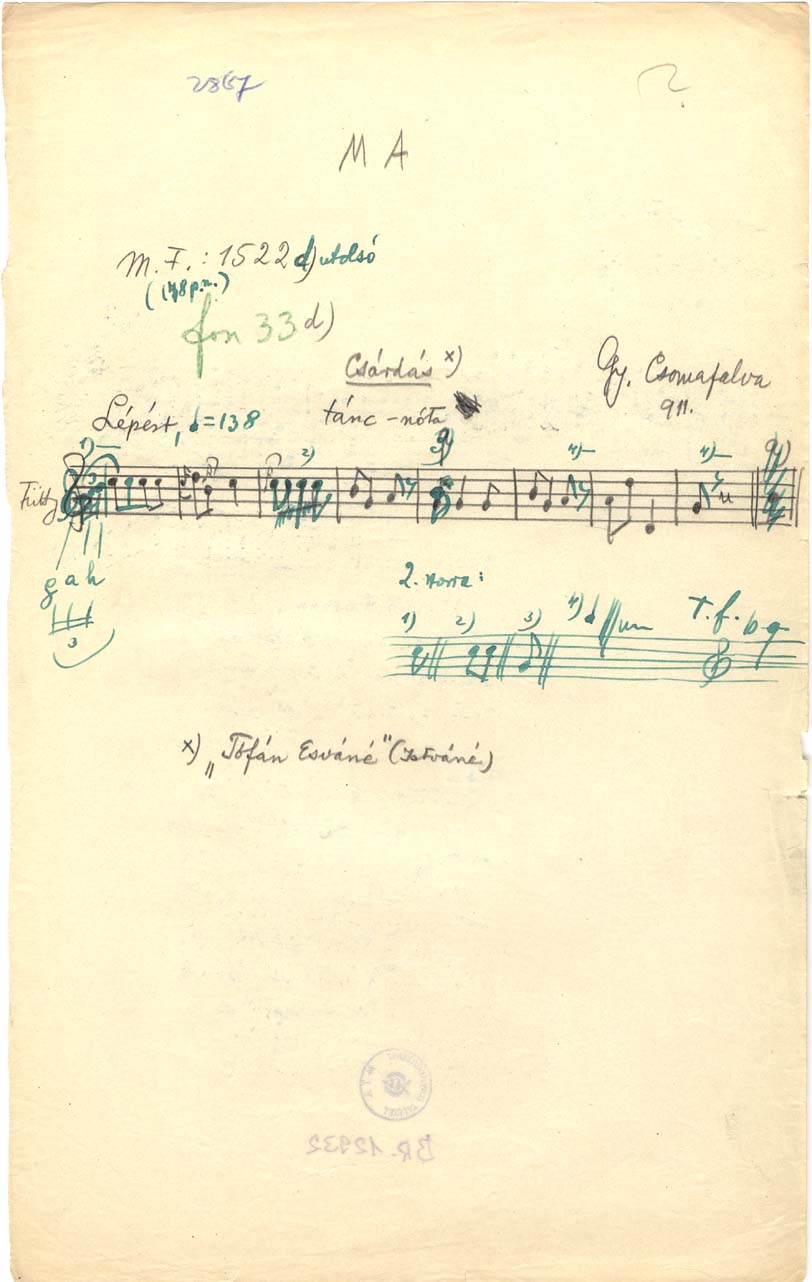 2867 ?
M A
M. F. : 1522 d) utolsó
fon 33 d)
Csárdás x)
Gy. Csomafalva
911.
Lépést, ♩=138 tánc-nóta
1) 2) 4) 4)
3
g a h
3
2. Storra :
1) 2) 3) 4)
T. f. b g
x) „Tófán Esváné" (Istváné)
BR. 12932